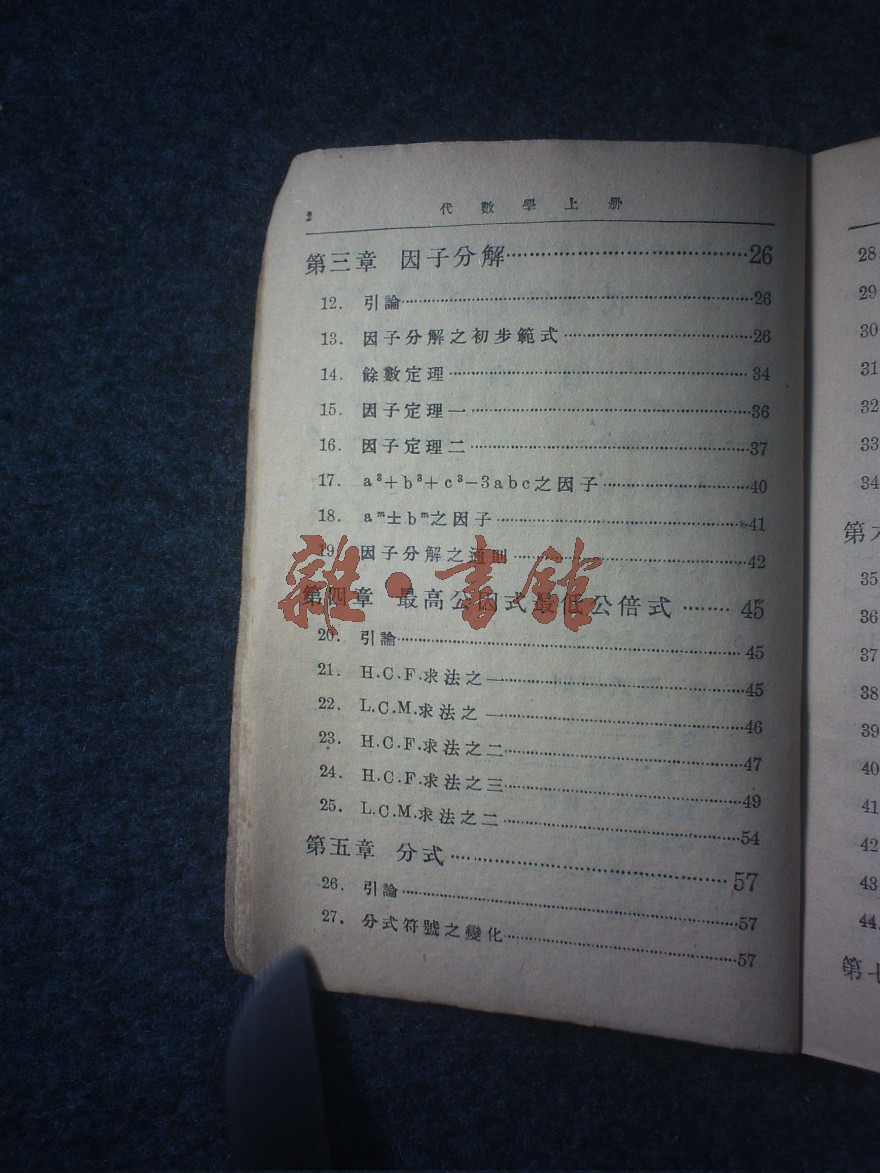 2 代數學上册
第三章 因子分解 26
12. 引論 26
13. 因子分解之初步範式 26
14. 餘數定理 34
15. 因子定理一 36
16. 因子定理二 37
17. a³+b³+c³-3abc之因子 40
18. aᵐ±bᵐ之因子 41
19. 因子分解之通則 42
雜·書館
第四章 最高公因式最低公倍式 45
20. 引論 45
21. H.C.F.求法之一 45
22. L.C.M.求法之一 46
23. H.C.F.求法之二 47
24. H.C.F.求法之三 49
25. L.C.M.求法之二 54
第五章 分式 57
26. 引論 57
27. 分式符號之變化 57
28
29
30
31
32
33
34
第
35
36
37
38
39
40
41
42
43
44
第七